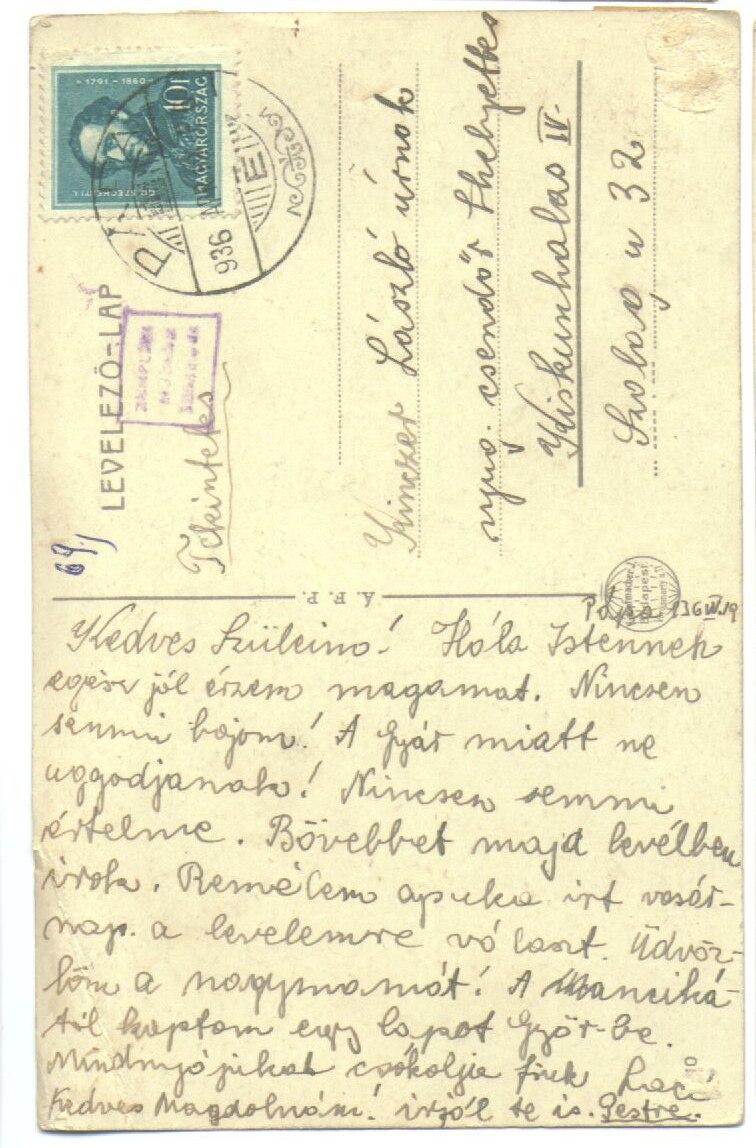 1791-1860
10f
MAGYARORSZÁG
GR. SZÉCHENYI I.
936
LEVELEZŐ-LAP
69
Tekintetes
Kinczer László úrnak
nyug. csendőr thelyettes
Kiskunhalas IV.
Szabay u 32
Á. F. P.
Budapest
Pápa, 936 IV. 19
Kedves Szüleim! Hála Istennek
egész jól érzem magamat. Nincsen
semmi bajom! A Gyár miatt ne
aggodjanak! Nincsen semmi
értelme. Bővebbet majd levélben
irok. Remélem apuka irt vasár-
nap. a levelemre választ. Üdvöz-
löm a nagymamát! A Manciká-
tól kaptam egy lapot Győr-be.
Mindnyájukat csókolja fiuk Laci
Kedves Magdolnám! irjál te is. Pestre.